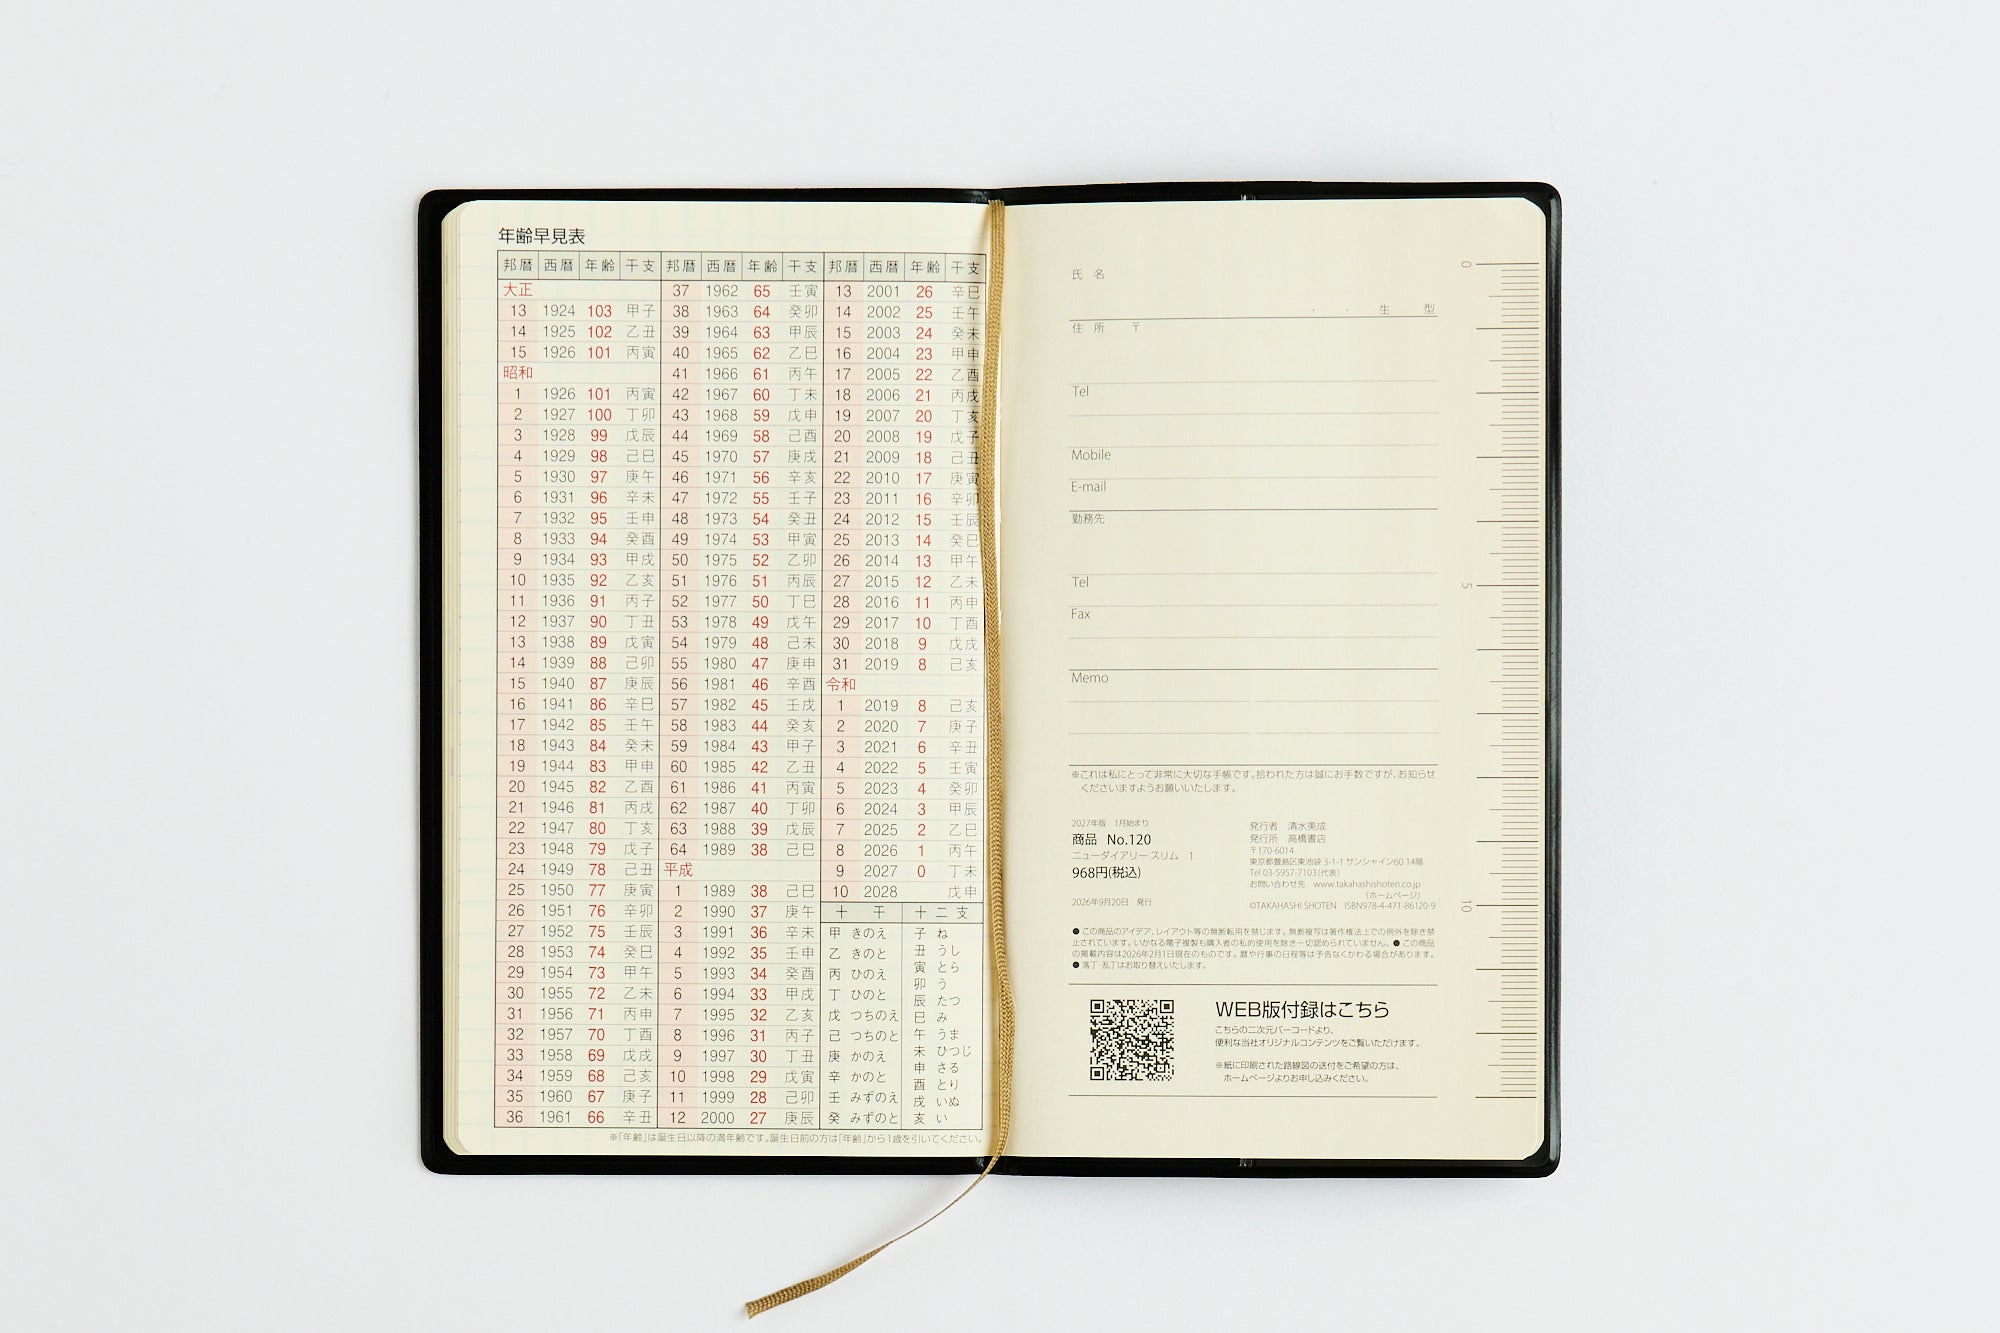 年齢早見表
邦暦 西暦 年齢 干支
大正
13 1924 103 甲子
14 1925 102 乙丑
15 1926 101 丙寅
昭和
1 1926 101 丙寅
2 1927 100 丁卯
3 1928 99 戊辰
4 1929 98 己巳
5 1930 97 庚午
6 1931 96 辛未
7 1932 95 壬申
8 1933 94 癸酉
9 1934 93 甲戌
10 1935 92 乙亥
11 1936 91 丙子
12 1937 90 丁丑
13 1938 89 戊寅
14 1939 88 己卯
15 1940 87 庚辰
16 1941 86 辛巳
17 1942 85 壬午
18 1943 84 癸未
19 1944 83 甲申
20 1945 82 乙酉
21 1946 81 丙戌
22 1947 80 丁亥
23 1948 79 戊子
24 1949 78 己丑
25 1950 77 庚寅
26 1951 76 辛卯
27 1952 75 壬辰
28 1953 74 癸巳
29 1954 73 甲午
30 1955 72 乙未
31 1956 71 丙申
32 1957 70 丁酉
33 1958 69 戊戌
34 1959 68 己亥
35 1960 67 庚子
36 1961 66 辛丑
邦暦 西暦 年齢 干支
37 1962 65 壬寅
38 1963 64 癸卯
39 1964 63 甲辰
40 1965 62 乙巳
41 1966 61 丙午
42 1967 60 丁未
43 1968 59 戊申
44 1969 58 己酉
45 1970 57 庚戌
46 1971 56 辛亥
47 1972 55 壬子
48 1973 54 癸丑
49 1974 53 甲寅
50 1975 52 乙卯
51 1976 51 丙辰
52 1977 50 丁巳
53 1978 49 戊午
54 1979 48 己未
55 1980 47 庚申
56 1981 46 辛酉
57 1982 45 壬戌
58 1983 44 癸亥
59 1984 43 甲子
60 1985 42 乙丑
61 1986 41 丙寅
62 1987 40 丁卯
63 1988 39 戊辰
64 1989 38 己巳
平成
1 1989 38 己巳
2 1990 37 庚午
3 1991 36 辛未
4 1992 35 壬申
5 1993 34 癸酉
6 1994 33 甲戌
7 1995 32 乙亥
8 1996 31 丙子
9 1997 30 丁丑
10 1998 29 戊寅
11 1999 28 己卯
12 2000 27 庚辰
邦暦 西暦 年齢 干支
13 2001 26 辛巳
14 2002 25 壬午
15 2003 24 癸未
16 2004 23 甲申
17 2005 22 乙酉
18 2006 21 丙戌
19 2007 20 丁亥
20 2008 19 戊子
21 2009 18 己丑
22 2010 17 庚寅
23 2011 16 辛卯
24 2012 15 壬辰
25 2013 14 癸巳
26 2014 13 甲午
27 2015 12 乙未
28 2016 11 丙申
29 2017 10 丁酉
30 2018 9 戊戌
31 2019 8 己亥
令和
1 2019 8 己亥
2 2020 7 庚子
3 2021 6 辛丑
4 2022 5 壬寅
5 2023 4 癸卯
6 2024 3 甲辰
7 2025 2 乙巳
8 2026 1 丙午
9 2027 0 丁未
10 2028 戊申
十干
甲 きのえ
乙 きのと
丙 ひのえ
丁 ひのと
戊 つちのえ
己 つちのと
庚 かのえ
辛 かのと
壬 みずのえ
癸 みずのと
十二支
子 ね
丑 うし
寅 とら
卯 う
辰 たつ
巳 み
午 うま
未 ひつじ
申 さる
酉 とり
戌 いぬ
亥 い
※「年齢」は誕生日以降の満年齢です。誕生日前の方は「年齢」から1歳を引いてください。
氏名
・ ・ 生 型
住所 〒
Tel
Mobile
E-mail
勤務先
Tel
Fax
Memo
※これは私にとって非常に大切な手帳です。拾われた方は誠にお手数ですが、お知らせ
くださいますようお願いいたします。
2027年版 1月始まり
商品 No.120
ニューダイアリー スリム 1
968円(税込)
2026年9月20日 発行
発行者 清水美成
発行所 高橋書店
〒170-6014
東京都豊島区東池袋 3-1-1 サンシャイン60 14階
Tel 03-5957-7103(代表)
お問い合わせ先 www.takahashishoten.co.jp
(ホームページ)
©TAKAHASHI SHOTEN ISBN978-4-471-86120-9
● この商品のアイデア、レイアウト等の無断転用を禁じます。無断複写は著作権法上での例外を除き禁
止されています。いかなる電子複製も購入者の私的使用を除き一切認められていません。● この商品
の掲載内容は2026年2月1日現在のものです。暦や行事の日程等は予告なくかわる場合があります。
● 落丁・乱丁はお取り替えいたします。
WEB版付録はこちら
こちらの二次元バーコードより、
便利な当社オリジナルコンテンツをご覧いただけます。
※紙に印刷された路線図の送付をご希望の方は、
ホームページよりお申し込みください。
0
5
10